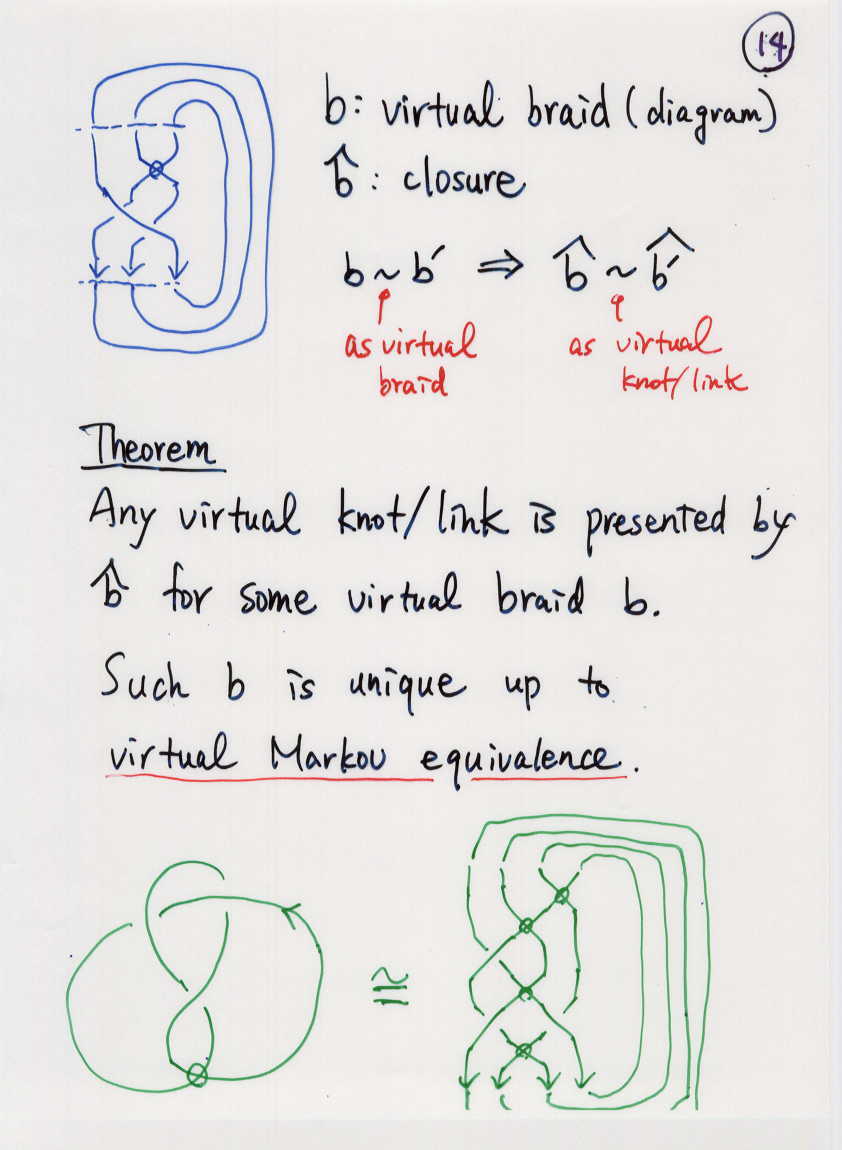 14
b: virtual braid (diagram)
b̂: closure
b ~ b′ ⇒ b̂ ~ b̂′
as virtual braid
as virtual knot/link
Theorem
Any virtual knot/link is presented by
b̂ for some virtual braid b.
Such b is unique up to
virtual Markov equivalence.
≅